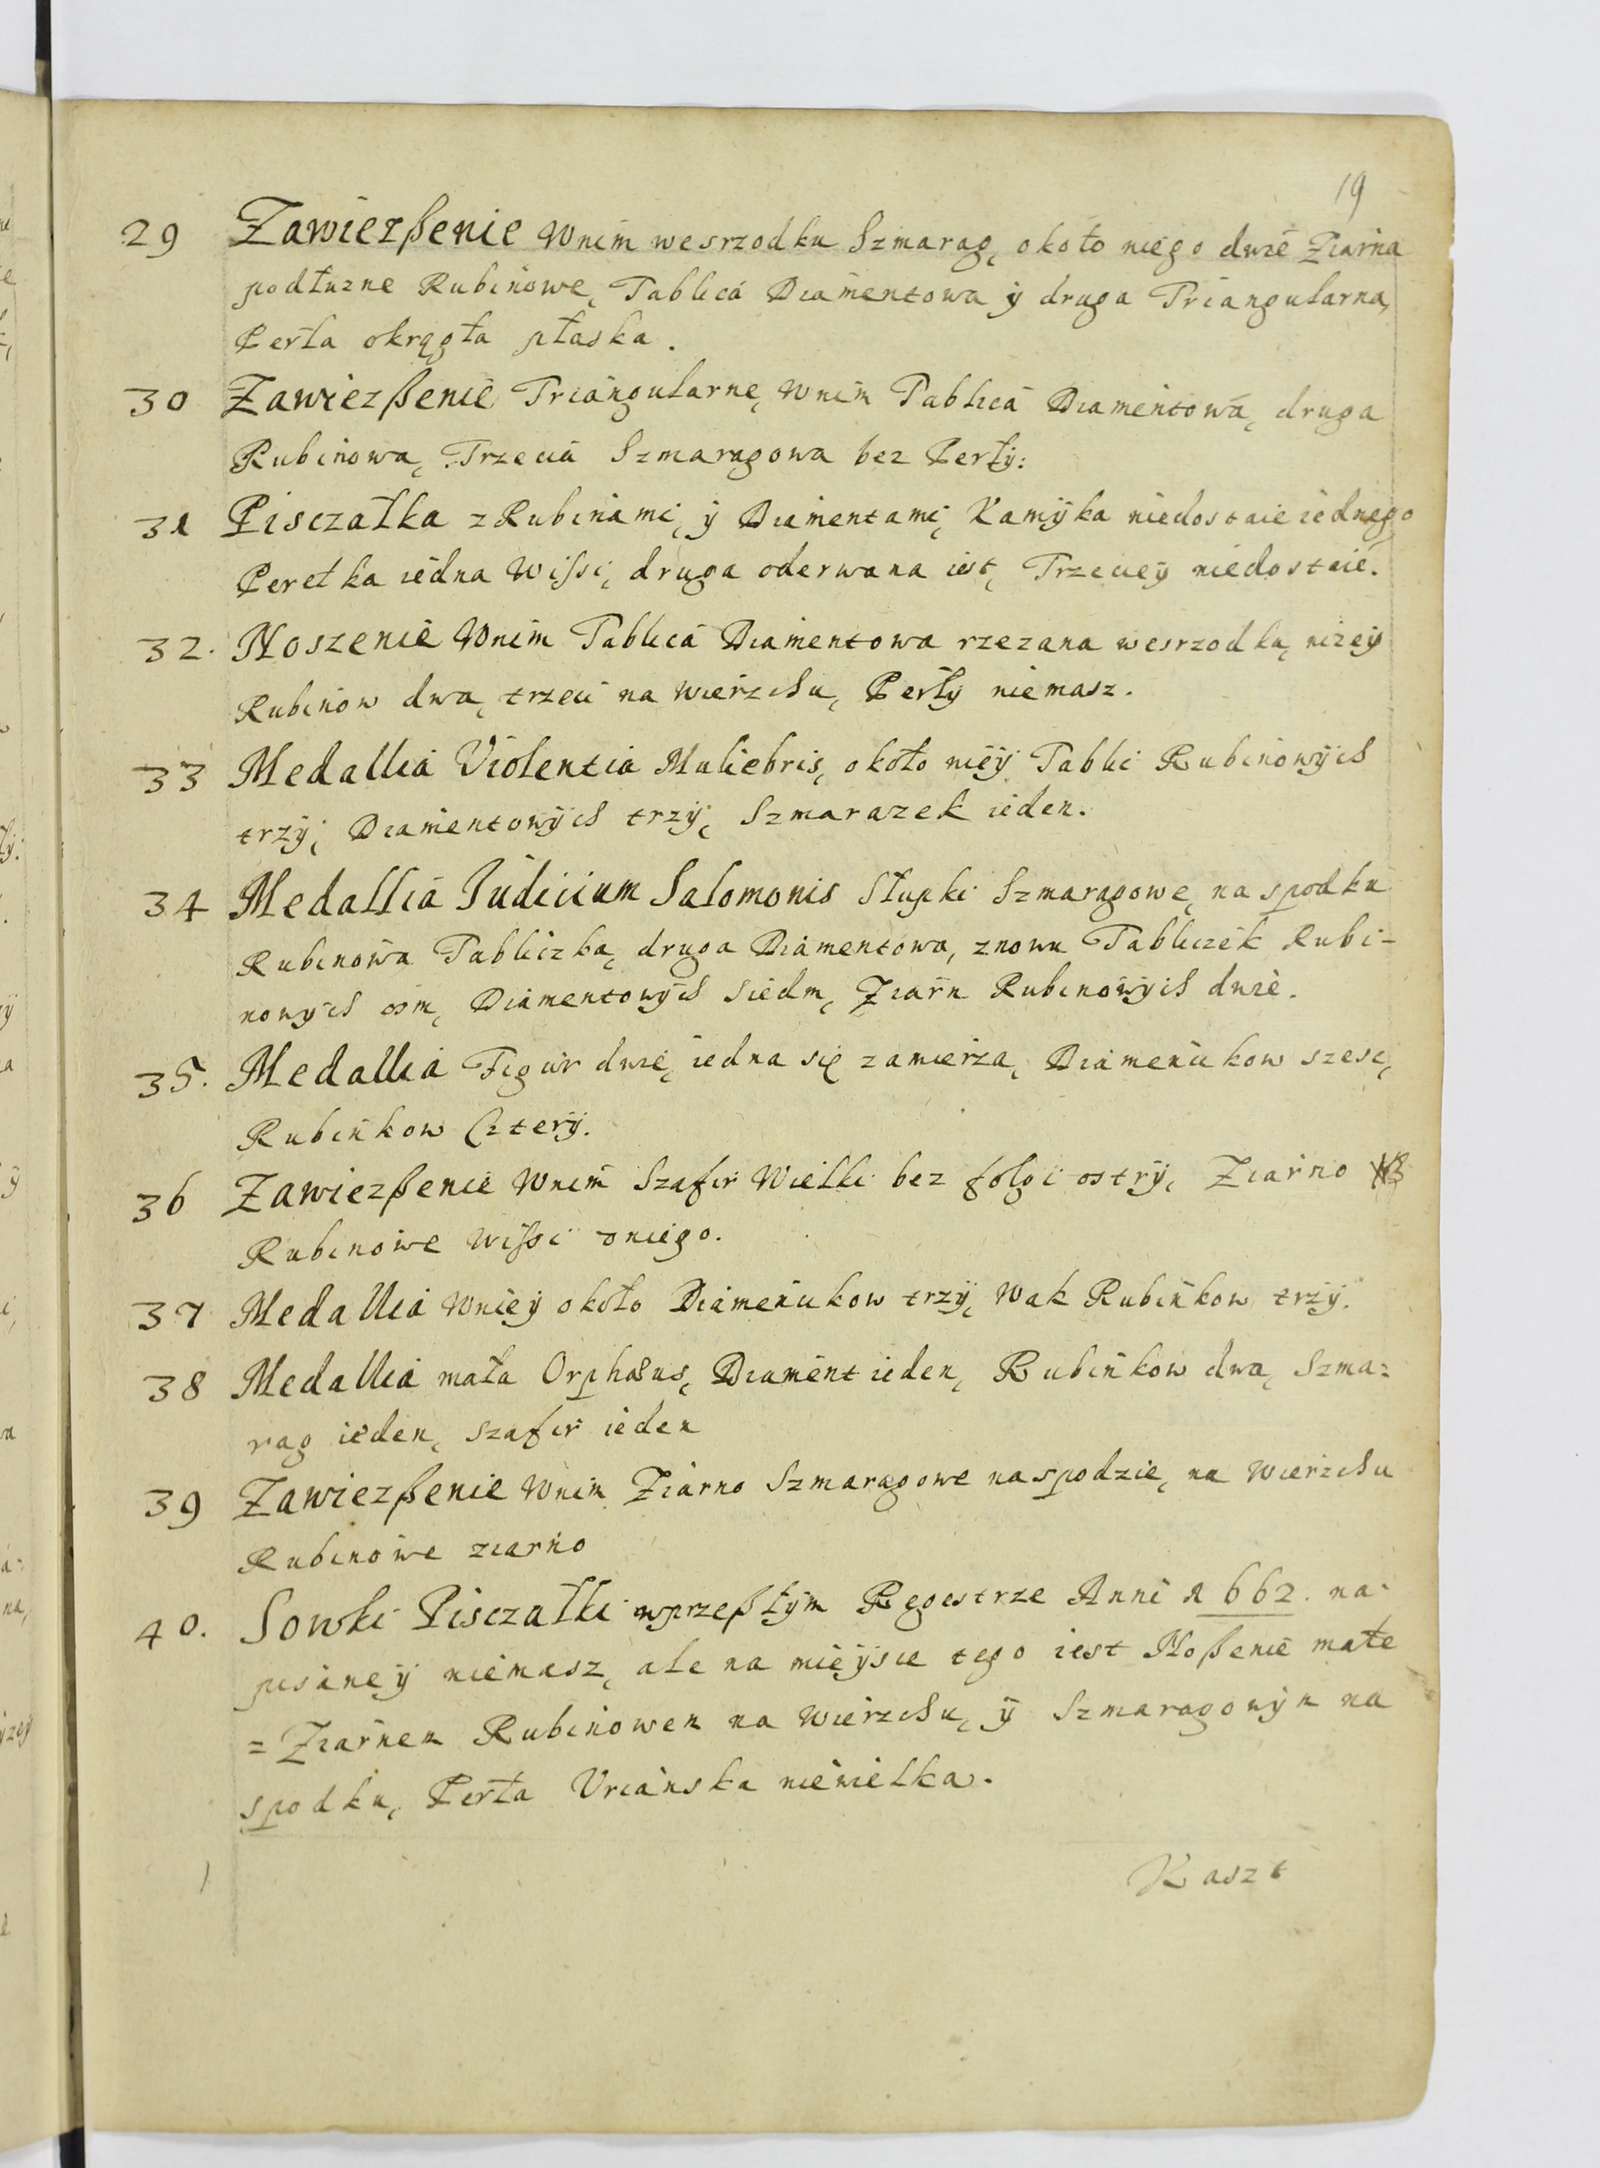 19
29 Zawiezßenie wnim wesrzodku Szmarag, około niego dwie Ziarna
podłuzne Rubinowe, Tablica Diamentowa ÿ druga Triangularna,
Perła okrągła płaska.
30 Zawiezßenie Triangularne, wnim Tablica Diamentowa, druga
Rubinowa, Trzecia Szmaragowa bez Perłÿ:
31 Pisczałka z Rubinami, ÿ Diamentami, Kamÿka niedostaie iednego
Perełka iedna Wissi, druga oderwana iest, Trzecieÿ niedostaie.
32. Noszenie Wnim Tablica Diamentowa rzezana wesrzodku, nizeÿ
Rubinow dwa, trzeci na wierzchu, Perłÿ niemasz.
33 Medallia Violentia Muliebris, około nieÿ Tablic Rubinowÿch
trzÿ, Diamentowÿch trzÿ, Szmarazek ieden.
34 Medallia Judicium Salomonis Słupki Szmaragowe, na spodku
Rubinowa Tabliczka, druga Diamentowa, znowu Tabliczek Rubi-
nowÿch osm, Diamentowÿch siedm, Ziarn Rubinowÿch dwie.
35. Medallia Figur dwie, iedna się zamierza, Diamencikow szesc,
Rubinkow Czterÿ.
36 Zawiezßenie Wnim Szafir Wielki bez folgi ostrÿ, Ziarno
Rubinowe Wissi uniego.
37 Medallia Wnieÿ około Diamencikow trzÿ, Wak Rubinkow trzÿ.
38 Medallia mała Orphæus, Diament ieden, Rubinkow dwa, Szma:
rag ieden, szafir ieden
39 Zawiezßenie Wnim Ziarno Szmaragowe naspodzie, na Wierzchu
Rubinowe ziarno
40. Sowki Pisczałki wprzeßłÿm Regestrze Anni 1662. na:
pisaneÿ niemasz, ale na mieÿscu tego iest Noßenie małe
z Ziarnem Rubinowem na Wierzchu, ÿ Szmaragowÿm na
spodku, Perła Uriańska niewielka.
Kaszt